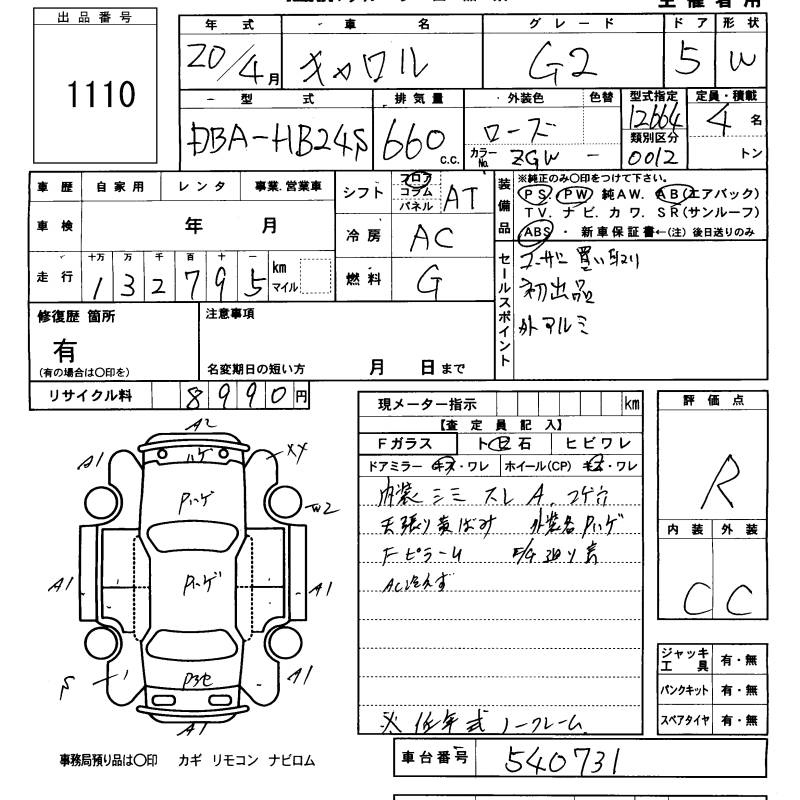 出品番号
1110
年式 車名 グレード ドア 形状
20/4月 キャロル G2 5 W
型式 排気量 外装色 色替 型式指定 定員・積載
DBA-HB24S 660c.c. ローズ 12664 4名
カラーNo. ZGW - 類別区分 0012 トン
車歴 自家用 レンタ 事業.営業車
シフト フロア コラム パネル AT
装備品
※純正のみ〇印をつけて下さい。
PS. PW 純AW. AB(エアバッグ)
TV. ナビ. カワ. SR(サンルーフ)
ABS・新車保証書←(注) 後日送りのみ
車検 年 月
冷房 AC
走行 十万 万 千 百 十 一
132795 km マイル
燃料 G
セールスポイント
ユーザー買い取り
初出品
外アルミ
修復歴 箇所
有
(有の場合は〇印を)
注意事項
名変期日の短い方 月 日まで
リサイクル料 8990円
現メーター指示 km
【査定員記入】
Fガラス トビ石 ヒビワレ
ドアミラー キズ・ワレ ホイール(CP) キズ・ワレ
内装 シミ スレ A. コゲ穴
天張り黄ばみ 外装各Pハゲ
Fピラーム
AC冷えず
※低年式 ノークレーム
評価点
R
内装 外装
C C
A2
A1 ハゲ XX
Pハゲ
W2
A1 Pハゲ A1
S 1 A1
A1
ジャッキ工具 有・無
パンクキット 有・無
スペアタイヤ 有・無
事務局預り品は〇印 カギ リモコン ナビロム
車台番号 540731